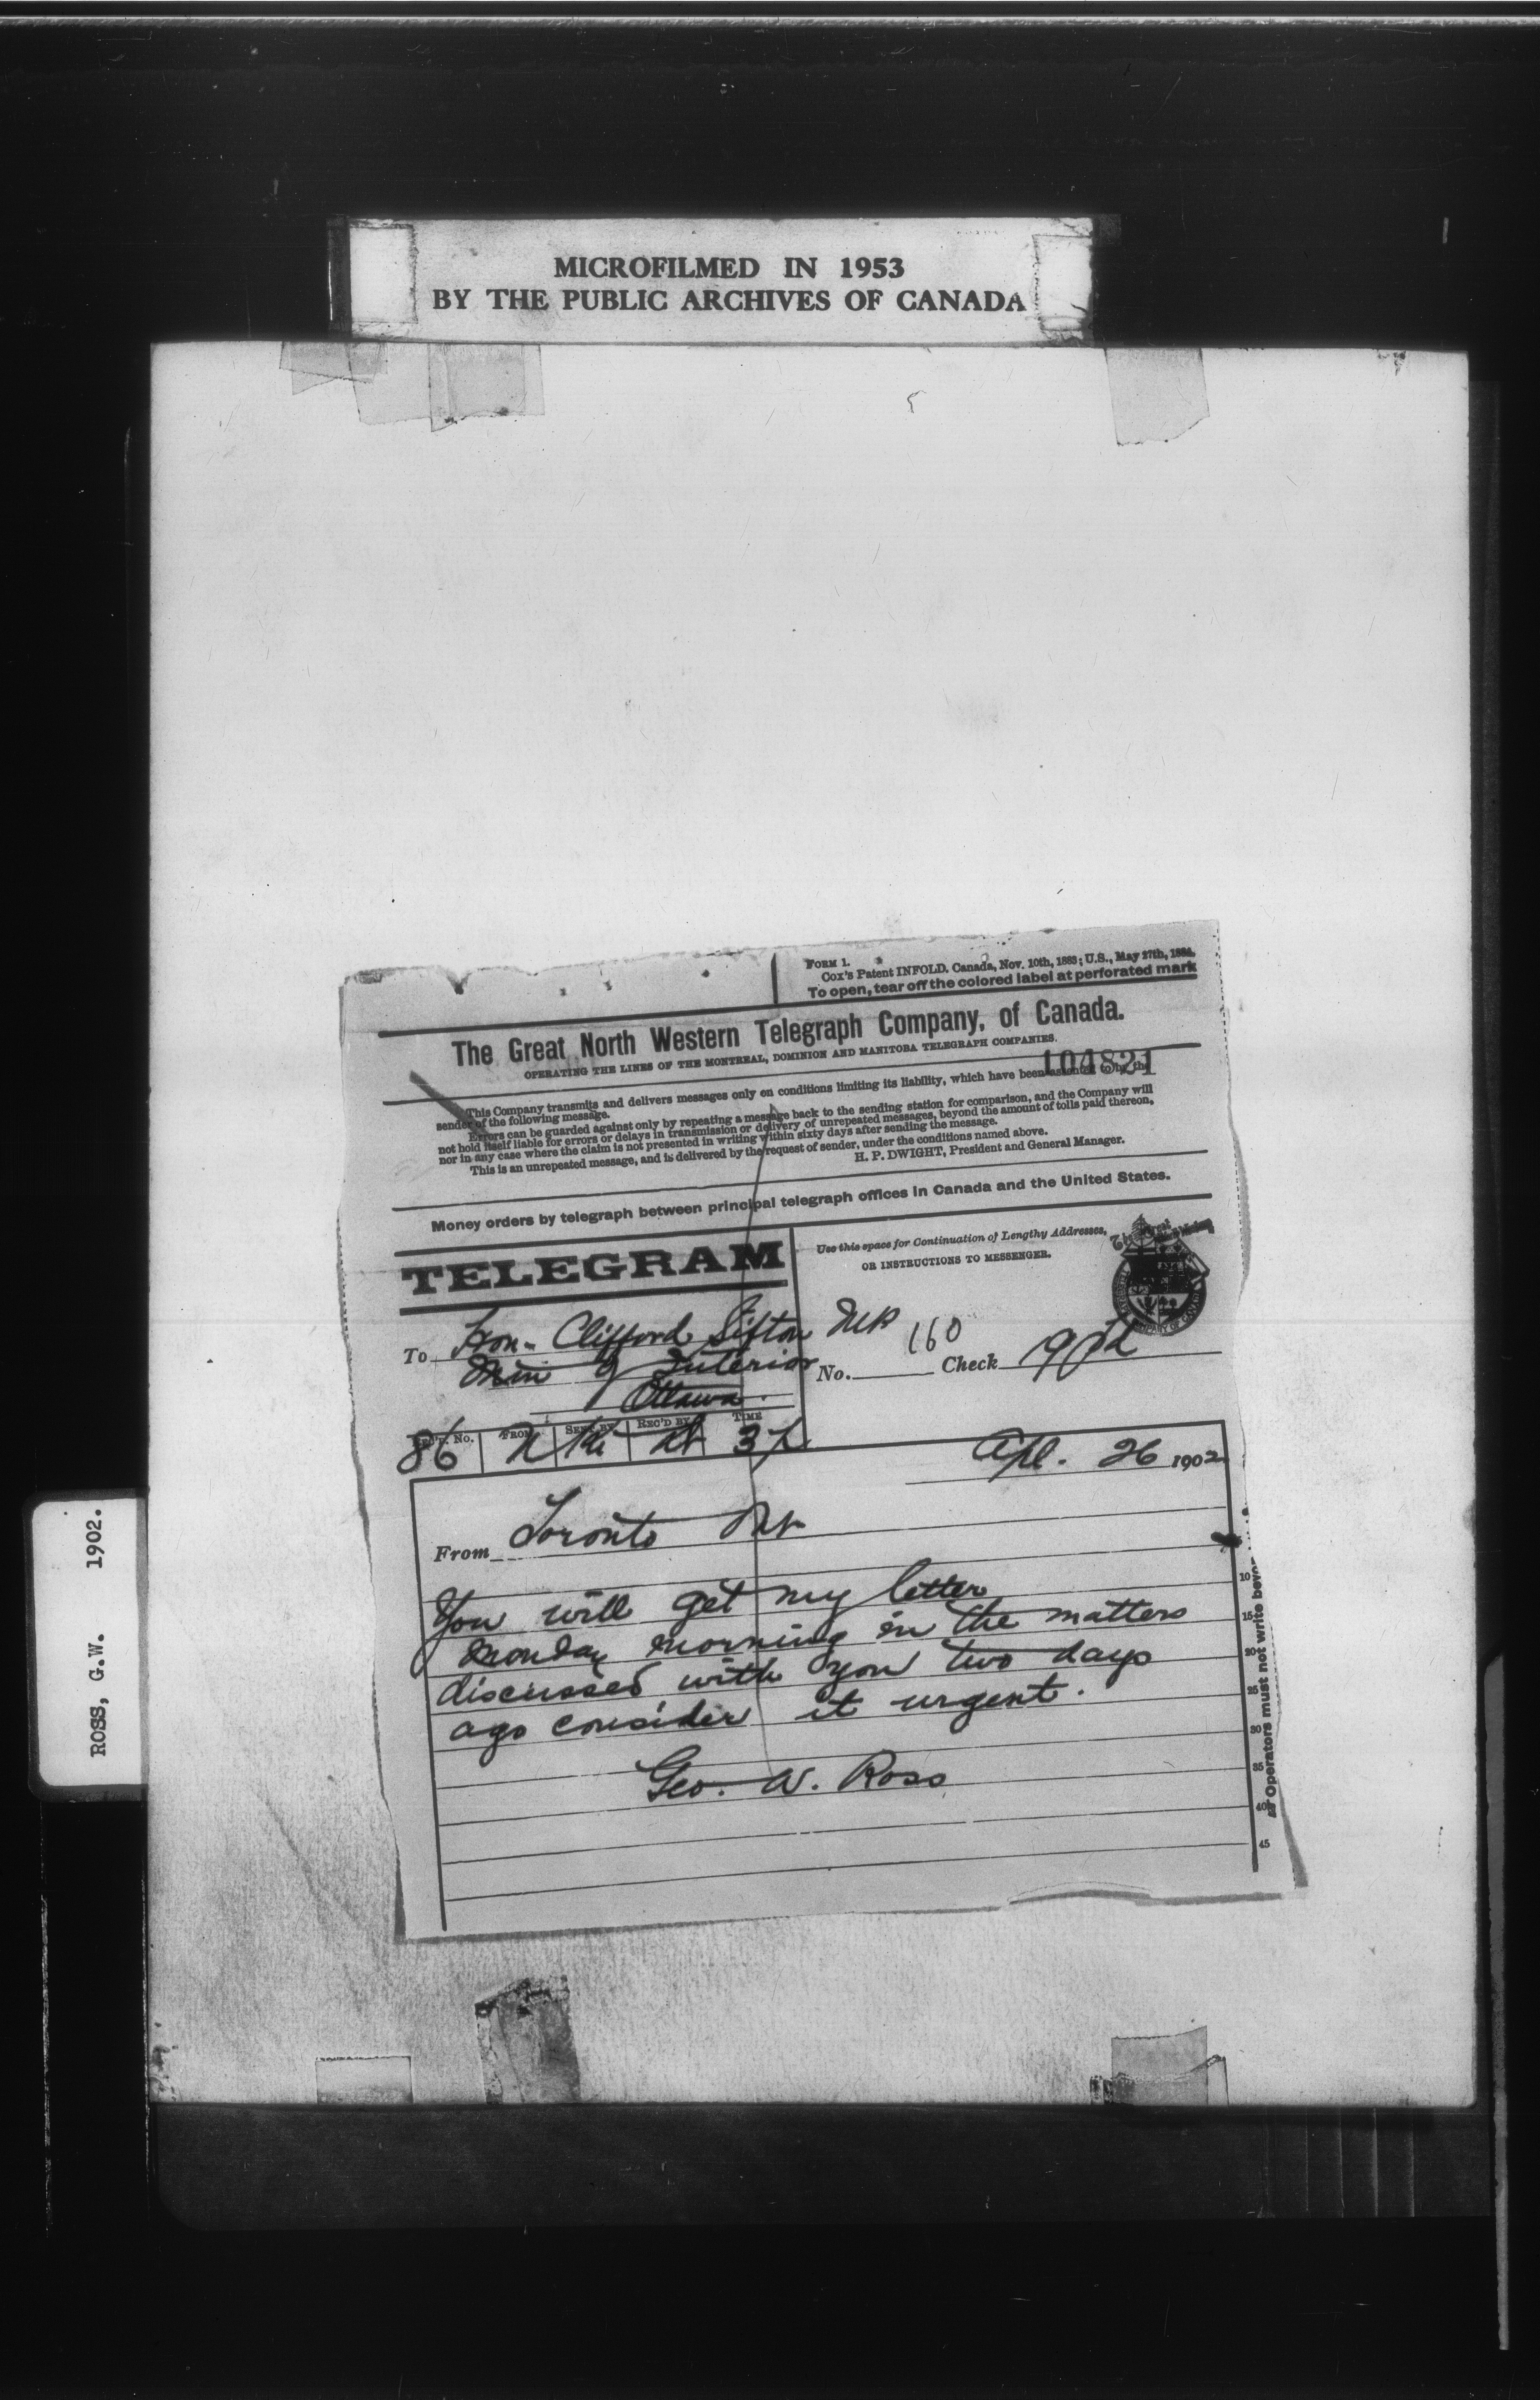 MICROFILMED IN 1953
BY THE PUBLIC ARCHIVES OF CANADA
ROSS, G.W. 1902.
FORM 1.
Cox's Patent INFOLD. Canada, Nov. 10th, 1883; U.S., May 27th, 1884.
To open, tear off the colored label at perforated mark
The Great North Western Telegraph Company, of Canada.
OPERATING THE LINES OF THE MONTREAL, DOMINION AND MANITOBA TELEGRAPH COMPANIES.
104821
This Company transmits and delivers messages only on conditions limiting its liability, which have been assented to by the
sender of the following message.
Errors can be guarded against only by repeating a message back to the sending station for comparison, and the Company will
not hold itself liable for errors or delays in transmission or delivery of unrepeated messages, beyond the amount of tolls paid thereon,
nor in any case where the claim is not presented in writing within sixty days after sending the message.
This is an unrepeated message, and is delivered by the request of sender, under the conditions named above.
H. P. DWIGHT, President and General Manager.
Money orders by telegraph between principal telegraph offices in Canada and the United States.
TELEGRAM
Use this space for Continuation of Lengthy Addresses,
OR INSTRUCTIONS TO MESSENGER.
To Hon- Clifford Sifton
Min of Interior
Ottawa.
No. 160 Check
No. FROM SENT BY REC'D BY TIME
86
Apl. 26 1902
From Toronto
You will get my letter
Monday morning in the matters
discussed with you two days
ago consider it urgent.
Geo. W. Ross
10
15
20
25
30
35
40
45
Operators must not write